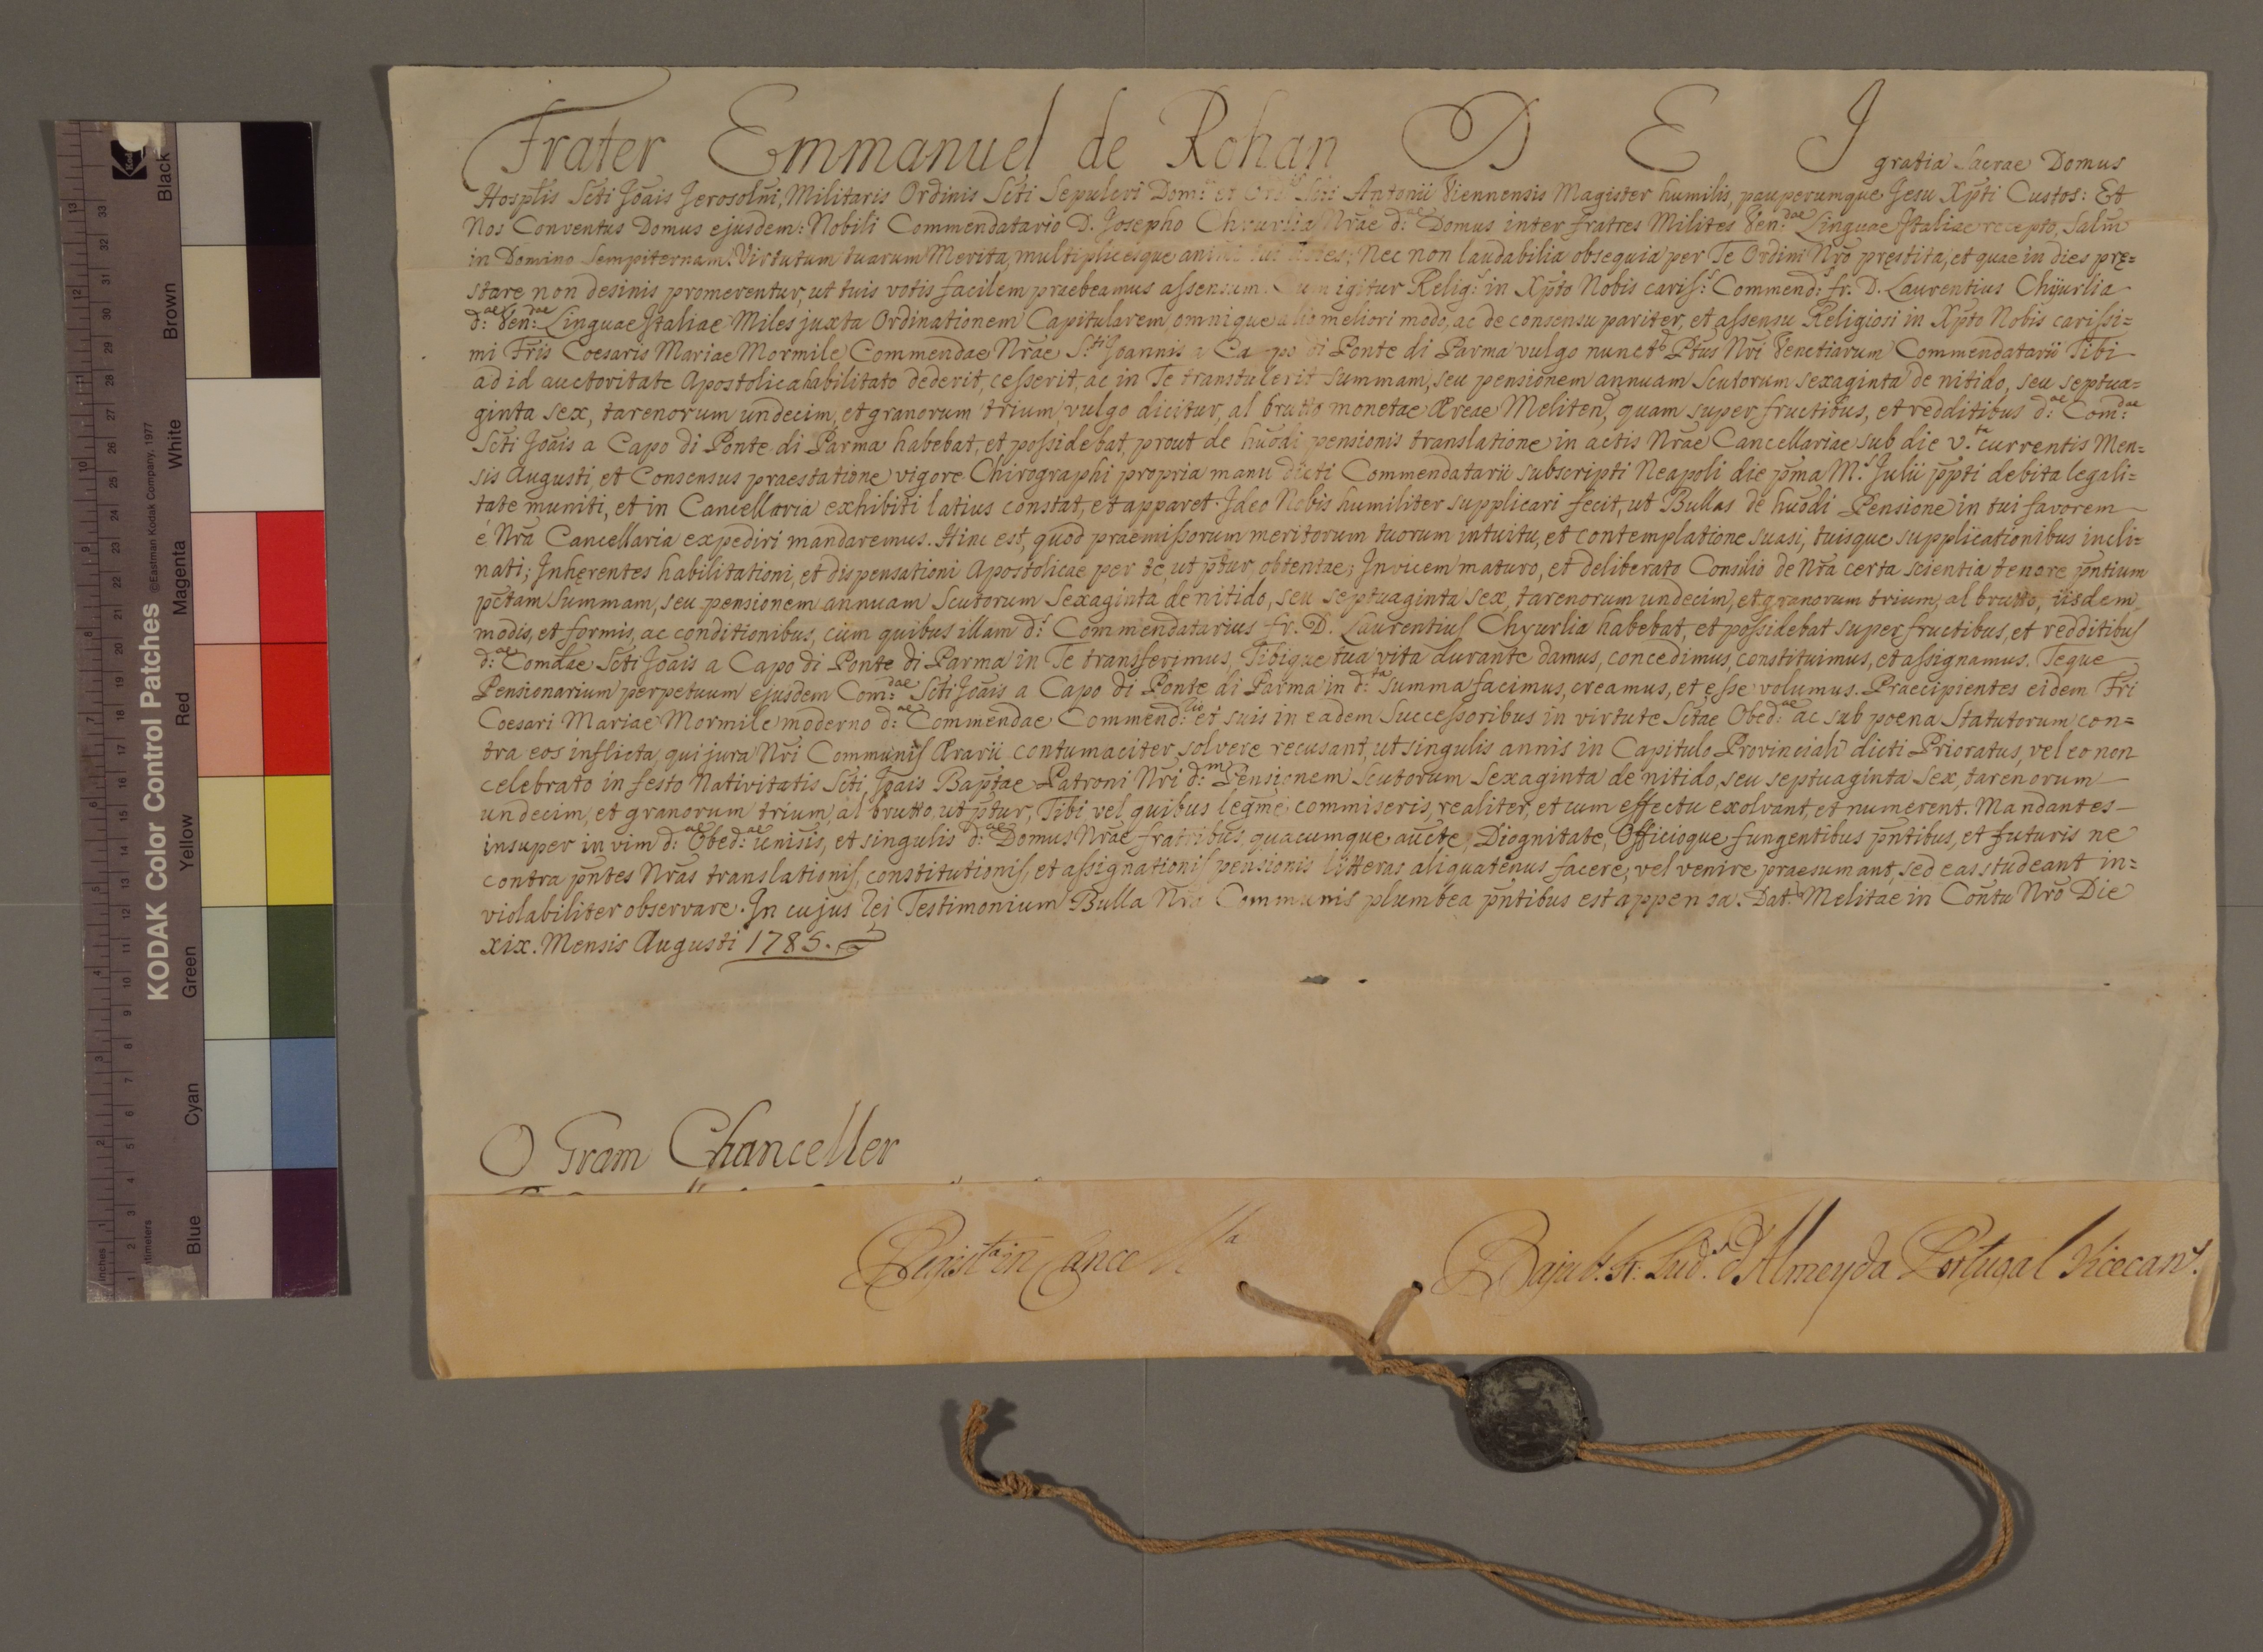 Frater Emmanuel de Rohan D E I gratia Sacrae Domus
Hosplis Scti Joais Jerosolni, Militaris Ordinis Scti Sepulcri Dom: et Scti Antonii Viennensis Magister humilis, pauperumque Jesu Xpti Custos: Et
Nos Conventus Domus ejusdem: Nobili Commendatario D. Josepho Chyurlia Nrae d:ae Domus inter fratres Milites Ven:dae Linguae Italiae recepto, Salm
in Domino Sempiternam. Virtutum tuarum Merita, multiplicesque animi tui dotes; Nec non laudabilia obsequia per Te Ordini Nro pręstita, et quae in dies prę=
stare non desinis promerentur, ut tuis votis facilem praebeamus assensum. Cum igitur Relig:s in Xpto Nobis cariss:s Commend:s fr. D. Laurentius Chyurlia
d:ae Ven:dae Linguae Italiae Miles juxta Ordinationem Capitularem, omnique alio meliori modo, ac de consensu pariter, et assensu Religiosi in Xpto Nobis carissi=
mi Fris Coesaris Mariae Mormile Commendae Nrae S.ti Joannis a Capo di Ponte di Parma vulgo nunc.to Ptus Nri Venetiarum Commendatarii Tibi
ad id auctoritate Apostolica habilitato dederit, cesserit, ac in Te transtulerit summam, seu pensionem annuam Scutorum sexaginta de nitido, seu septua=
ginta sex, tarenorum undecim, et granorum trium, vulgo dicitur, al brutto monetae Æreae Meliten, quam super fructibus, et redditibus d:ae Com:dae
Scti Joais a Capo di Ponte di Parma habebat, et possidebat, prout de huodi pensionis translatione in actis Nrae Cancellariae sub die v.ta currentis Men=
sis Augusti, et Consensus praestatione vigore Chirographi propria manu dicti Commendatarii subscripti Neapoli die pma M.s Julii ppti debita legali=
tate muniti, et in Cancellaria exhibiti latius constat, et apparet. Ideo Nobis humiliter supplicari fecit, ut Bullas de huodi Pensione in tui favorem
é Nra Cancellaria expediri mandaremus. Hinc est, quod praemissorum meritorum tuorum intuitu, et contemplatione suasi, tuisque supplicationibus incli=
nati; Inhęrentes habilitationi, et dispensationi Apostolicae per te, ut ptur, obtentae; Invicem maturo, et deliberato Consilio de Nra certa scientia tenore pntium
pctam summam, seu pensionem annuam Scutorum Sexaginta de nitido, seu Septuaginta sex, tarenorum undecim, et granorum trium, al brutto, iisdem
modis, et formis, ac conditionibus, cum quibus illam d:s Commendatarius fr. D. Laurentius Chyurlia habebat, et possidebat super fructibus, et redditibus
d:ae Comdae Scti Joais a Capo di Ponte di Parma in Te transferimus, Tibique tua vita durante damus, concedimus, constituimus, et assignamus. Teque
Pensionarium perpetuum ejusdem Com:dae Scti Joais a Capo di Ponte di Parma in d:ta summa facimus, creamus, et esse volumus. Praecipientes eidem Fri
Coesari Mariae Mormile moderno d:ae Commendae Commend:rio et suis in eadem Successoribus in virtute Sctae Obed:ae ac sub poena Statutorum con=
tra eos inflicta, qui jura Nri Communis Ærarii contumaciter solvere recusant, ut singulis annis in Capitulo Provinciali dicti Prioratus, vel eo non
celebrato in festo Nativitatis Scti Joais Baptae Patroni Nri d:m Pensionem Scutorum Sexaginta de nitido, seu septuaginta sex, tarenorum
undecim, et granorum trium, al brutto, ut ptur, Tibi vel quibus legme commiseris, realiter, et cum effectu exolvant, et numerent. Mandantes
insuper in vim d:ae Obed:ae unisis, et singulis d:ae Domus Nrae fratribus, quacumque aucte, Diognitate, Officioque fungentibus pntibus, et futuris ne
contra pntes Nras translationis, constitutionis, et assignationis pensionis litteras aliquatenus facere, vel venire praesumant, sed eas studeant in=
violabiliter observare. In cujus rei Testimonium Bulla Nra Communis plumbea pntibus est appensa. Dat. Melitae in Contu Nro Die
xix. Mensis Augusti 1785.
O Gram Chanceller
Regist.ta in Cancell.a
Bajul. fr. Lud.s d'Almeyda Portugal Vicecan.s
KODAK Color Control Patches
©Eastman Kodak Company, 1977
Black
Brown
White
Magenta
Red
Yellow
Green
Cyan
Blue
Inches